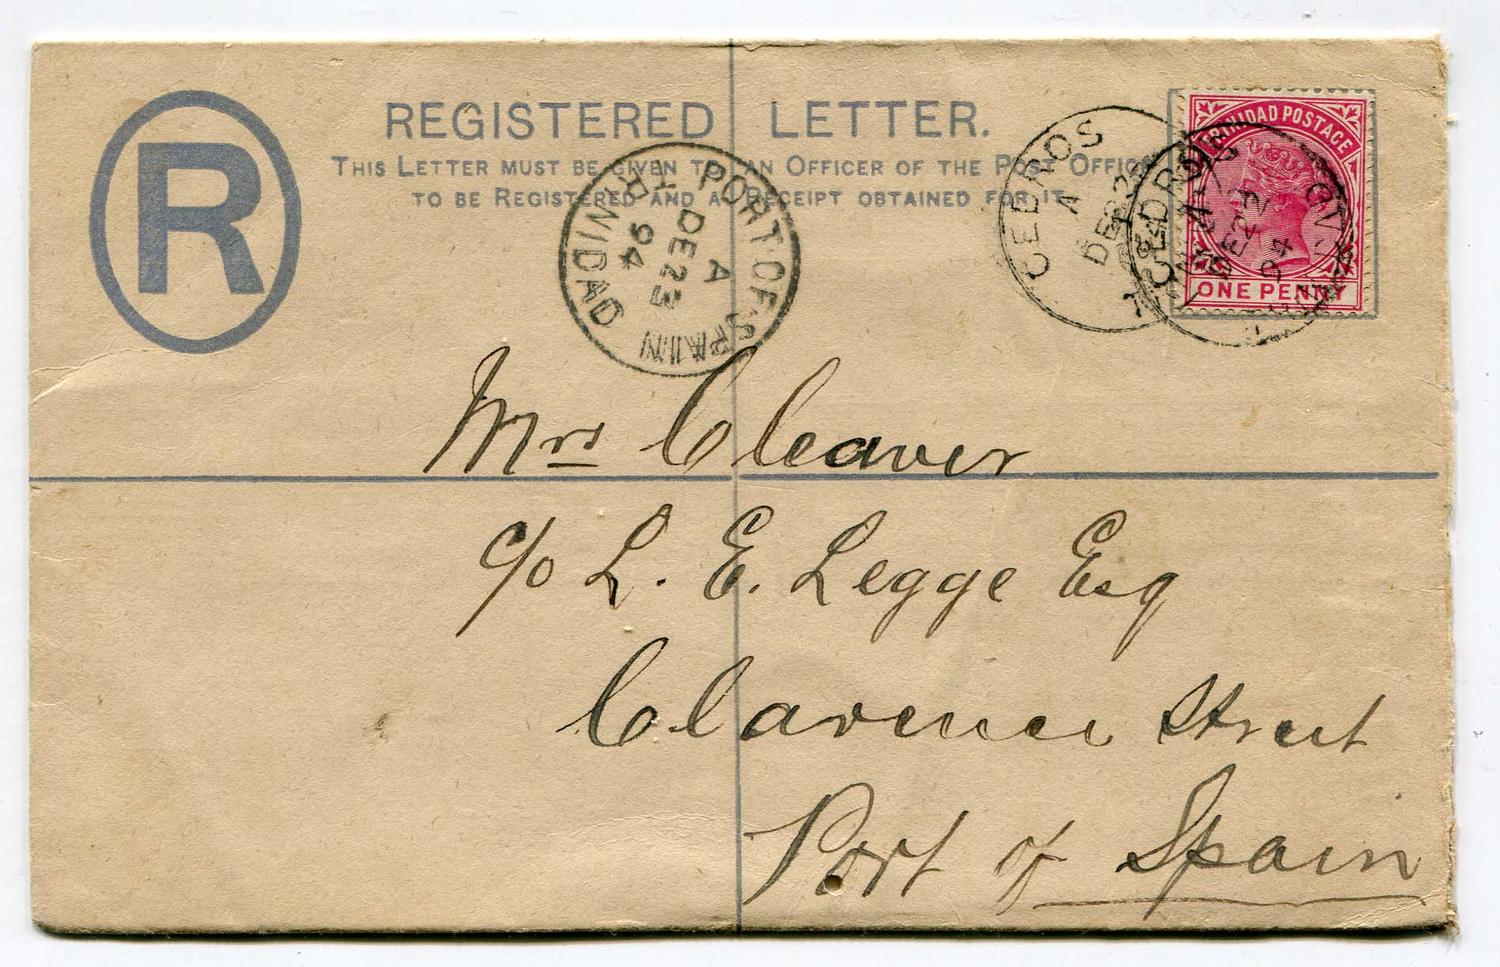 R
REGISTERED LETTER.
THIS LETTER MUST BE GIVEN TO AN OFFICER OF THE POST OFFICE
TO BE REGISTERED AND A RECEIPT OBTAINED FOR IT.
TRINIDAD POSTAGE
ONE PENNY
CEDROS
A
DE 22
CEDROS
A
DE 22
94
PORT OF SPAIN
A
DE 23
94
TRINIDAD
Mrs Cleaver
c/o L. E. Legge Esq
Clarence Street
Port of Spain